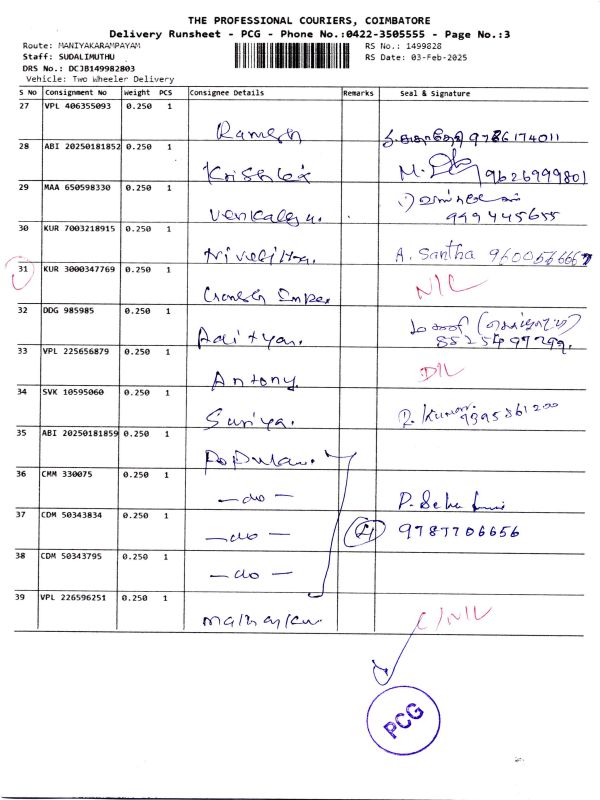 THE PROFESSIONAL COURIERS, COIMBATORE
Delivery Runsheet - PCG - Phone No.:0422-3505555 - Page No.:3
Route: MANIYAKARAMPAYAM
RS No.: 1499828
Staff: SUDALIMUTHU
RS Date: 03-Feb-2025
DRS No.: DCJB149982803
Vehicle: Two Wheeler Delivery
S No Consignment No Weight PCS Consignee Details Remarks Seal & Signature
27 VPL 406355093 0.250 1
Ramesh 9786174011
28 ABI 20250181852 0.250 1
9626999801
29 MAA 650598330 0.250 1
30 KUR 7003218915 0.250 1
A. Santha
31 KUR 3000347769 0.250 1
N/L
32 DDG 985985 0.250 1
Adityan.
33 VPL 225656879 0.250 1
Antony. D/L
34 SVK 10595060 0.250 1
Suriya.
35 ABI 20250181859 0.250 1
Popular.
36 CMM 330075 0.250 1
— do —
37 CDM 50343834 0.250 1
— do — 4 9787706656
38 CDM 50343795 0.250 1
— do —
39 VPL 226596251 0.250 1
PCG